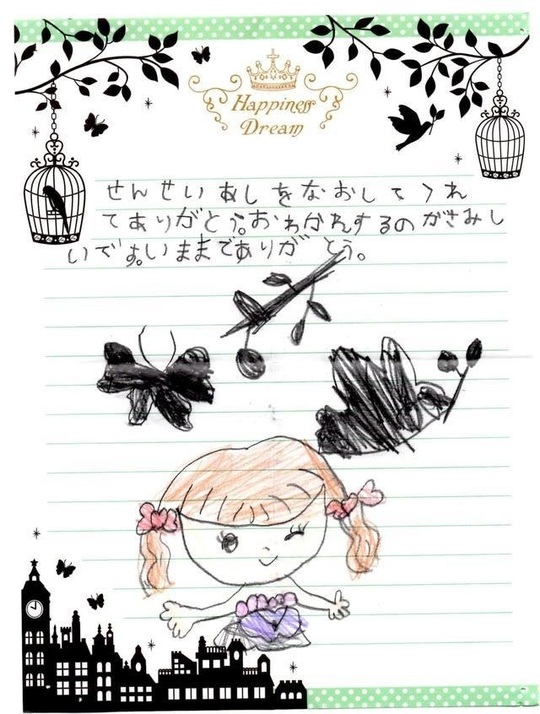 Happiness
Dream
せんせい あしをなおしてくれ
てありがとう。おわかれするのがさみし
いです。いままでありがとう。